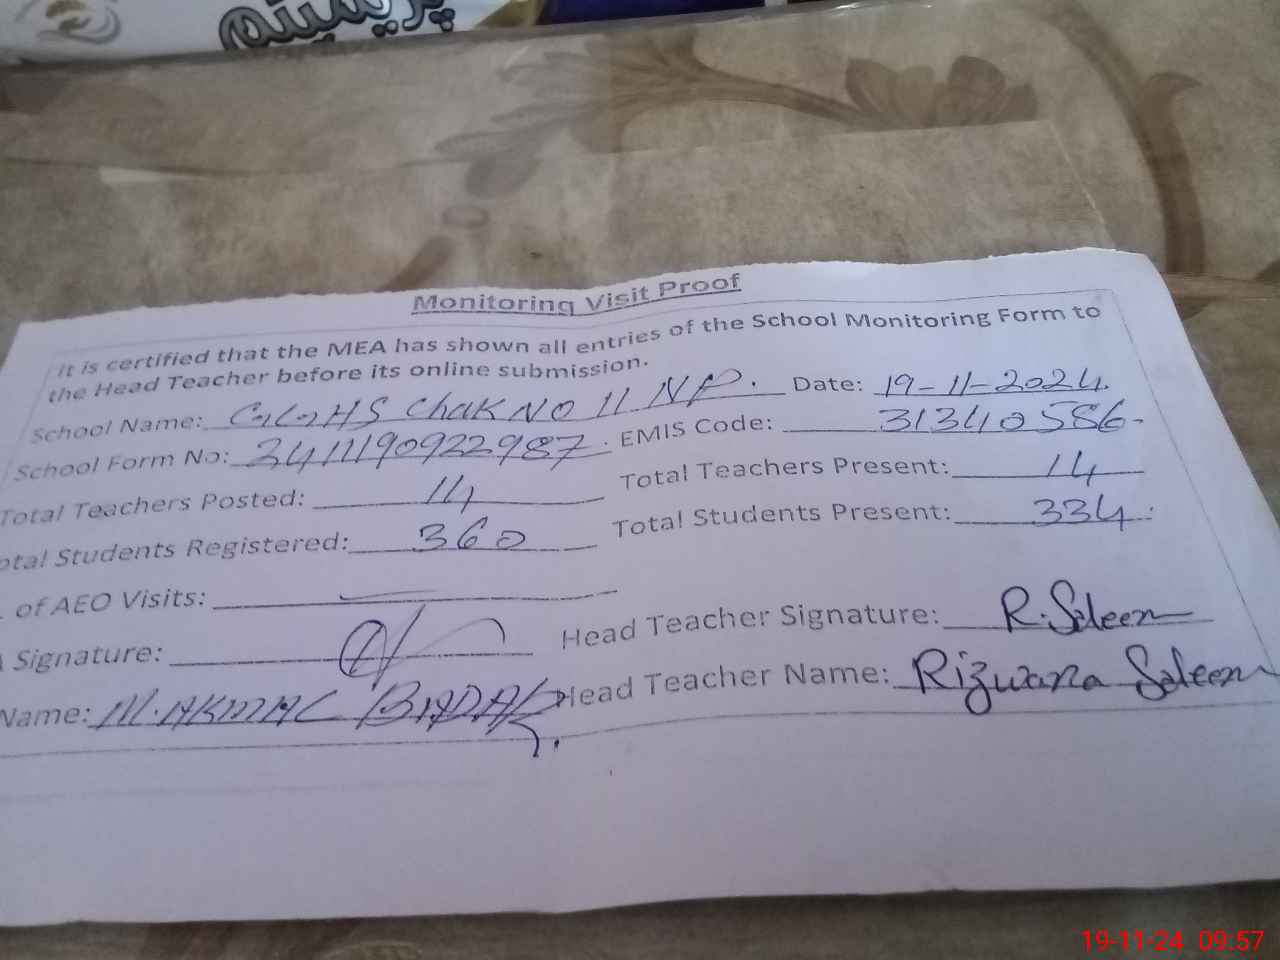 پریمیئم
Monitoring Visit Proof
It is certified that the MEA has shown all entries of the School Monitoring Form to
the Head Teacher before its online submission.
School Name: GGHS Chak NO 11 NP. Date: 19-11-2024.
School Form No: 3411190922987. EMIS Code: 31340586-
Total Teachers Posted: 14 Total Teachers Present: 14
otal Students Registered: 360 Total Students Present: 334
. of AEO Visits: —
Signature: Head Teacher Signature: R.Saleem
Name: M. AKMAL Head Teacher Name: Rizwana Saleem
19-11-24 09:57